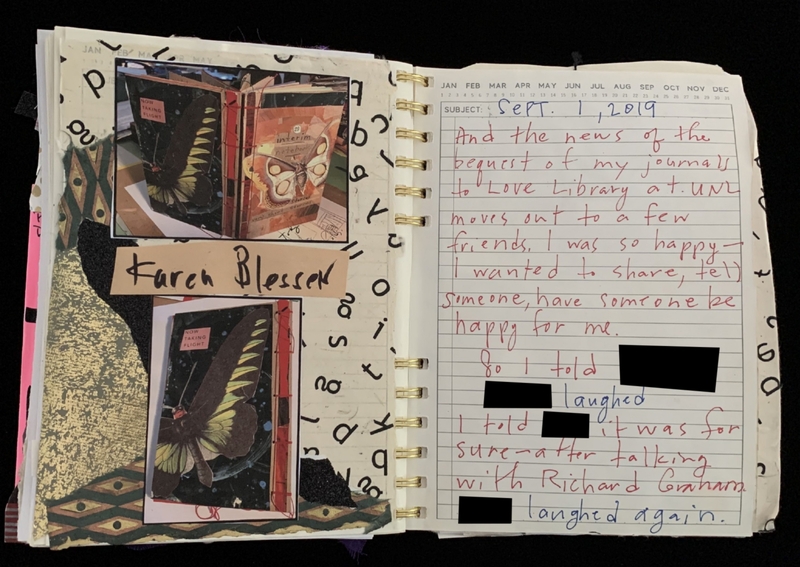 JAN FEB MAR
NOW
TAKING
FLIGHT
interim
Karen Blessen
NOW
TAKING
FLIGHT
JAN FEB MAR APR MAY JUN JUL AUG SEP OCT NOV DEC
SUBJECT: SEPT. 1, 2019
And the news of the
bequest of my journals
to Love Library at UNL
moves out to a few
friends. I was so happy—
I wanted to share, tell
someone, have someone be
happy for me.
So I told
laughed
I told it was for
sure—after talking
with Richard Graham.
laughed again.